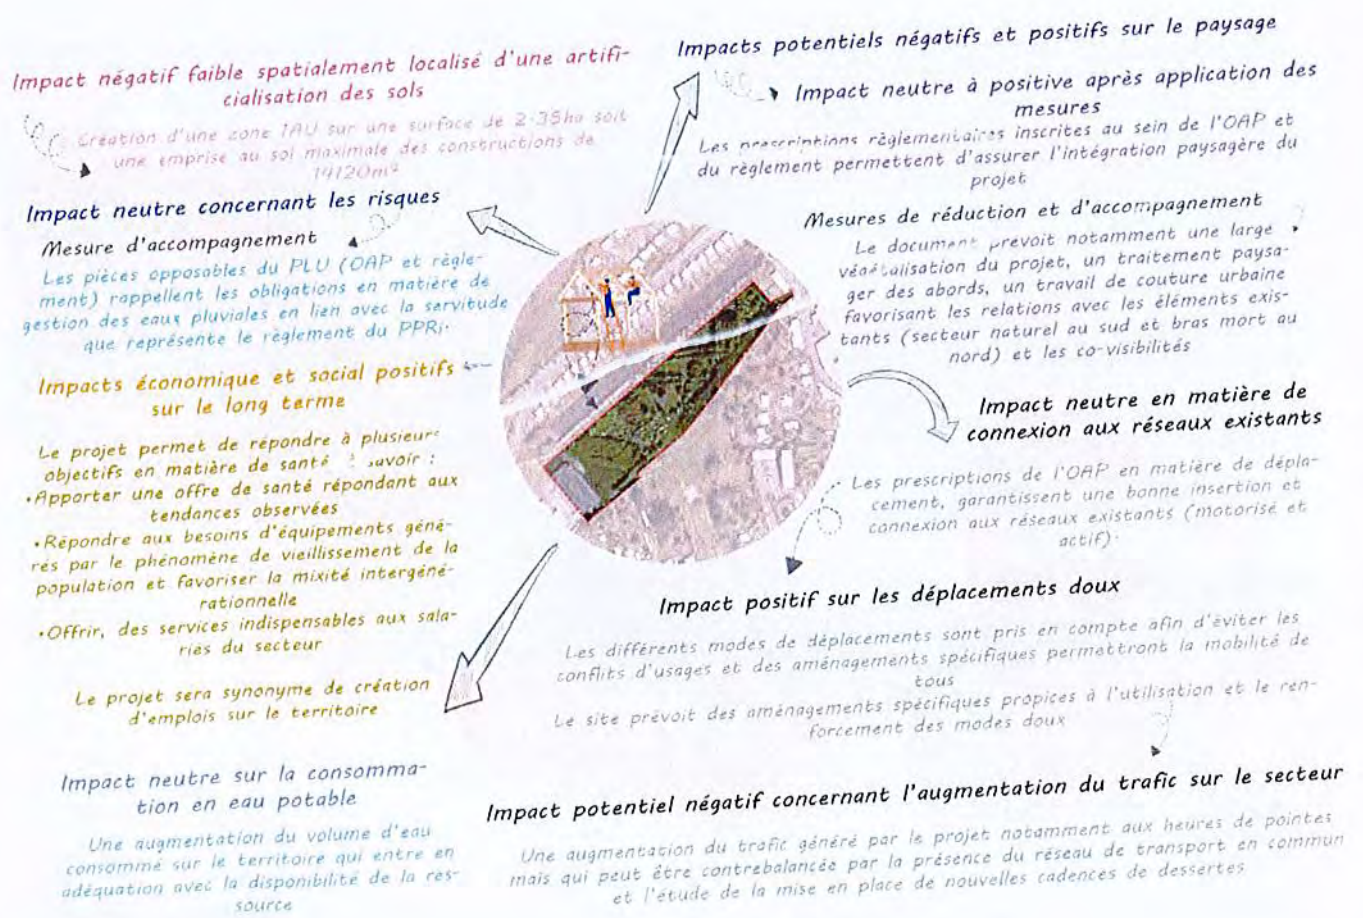 Impact négatif faible spatialement localisé d'une artifi-
cialisation des sols
Création d'une zone 1AU sur une surface de 2.35ha soit
une emprise au sol maximale des constructions de
14120m²
Impact neutre concernant les risques
Mesure d'accompagnement
Les pièces opposables du PLU (OAP et règle-
ment) rappellent les obligations en matière de
gestion des eaux pluviales en lien avec la servitude
que représente le règlement du PPRi.
Impacts économique et social positifs
sur le long terme
Le projet permet de répondre à plusieurs
objectifs en matière de santé savoir :
•Apporter une offre de santé répondant aux
tendances observées
•Répondre aux besoins d'équipements géné-
rés par le phénomène de vieillissement de la
population et favoriser la mixité intergéné-
rationnelle
•Offrir, des services indispensables aux sala-
ries du secteur
Le projet sera synonyme de création
d'emplois sur le territoire
Impact neutre sur la consomma-
tion en eau potable
Une augmentation du volume d'eau
consommé sur le territoire qui entre en
adéquation avec la disponibilité de la res-
source
Impacts potentiels négatifs et positifs sur le paysage
Impact neutre à positive après application des
mesures
Les prescriptions règlementaires inscrites au sein de l'OAP et
du règlement permettent d'assurer l'intégration paysagère du
projet
Mesures de réduction et d'accompagnement
Le document prévoit notamment une large
végétalisation du projet, un traitement paysa-
ger des abords, un travail de couture urbaine
favorisant les relations avec les éléments exis-
tants (secteur naturel au sud et bras mort au
nord) et les co-visibilités
Impact neutre en matière de
connexion aux réseaux existants
Les prescriptions de l'OAP en matière de dépla-
cement, garantissent une bonne insertion et
connexion aux réseaux existants (motorisé et
actif).
Impact positif sur les déplacements doux
Les différents modes de déplacements sont pris en compte afin d'éviter les
conflits d'usages et des aménagements spécifiques permettront la mobilité de
tous
Le site prévoit des aménagements spécifiques propices à l'utilisation et le ren-
forcement des modes doux
Impact potentiel négatif concernant l'augmentation du trafic sur le secteur
Une augmentation du trafic généré par le projet notamment aux heures de pointes
mais qui peut être contrebalancée par la présence du réseau de transport en commun
et l'étude de la mise en place de nouvelles cadences de dessertes